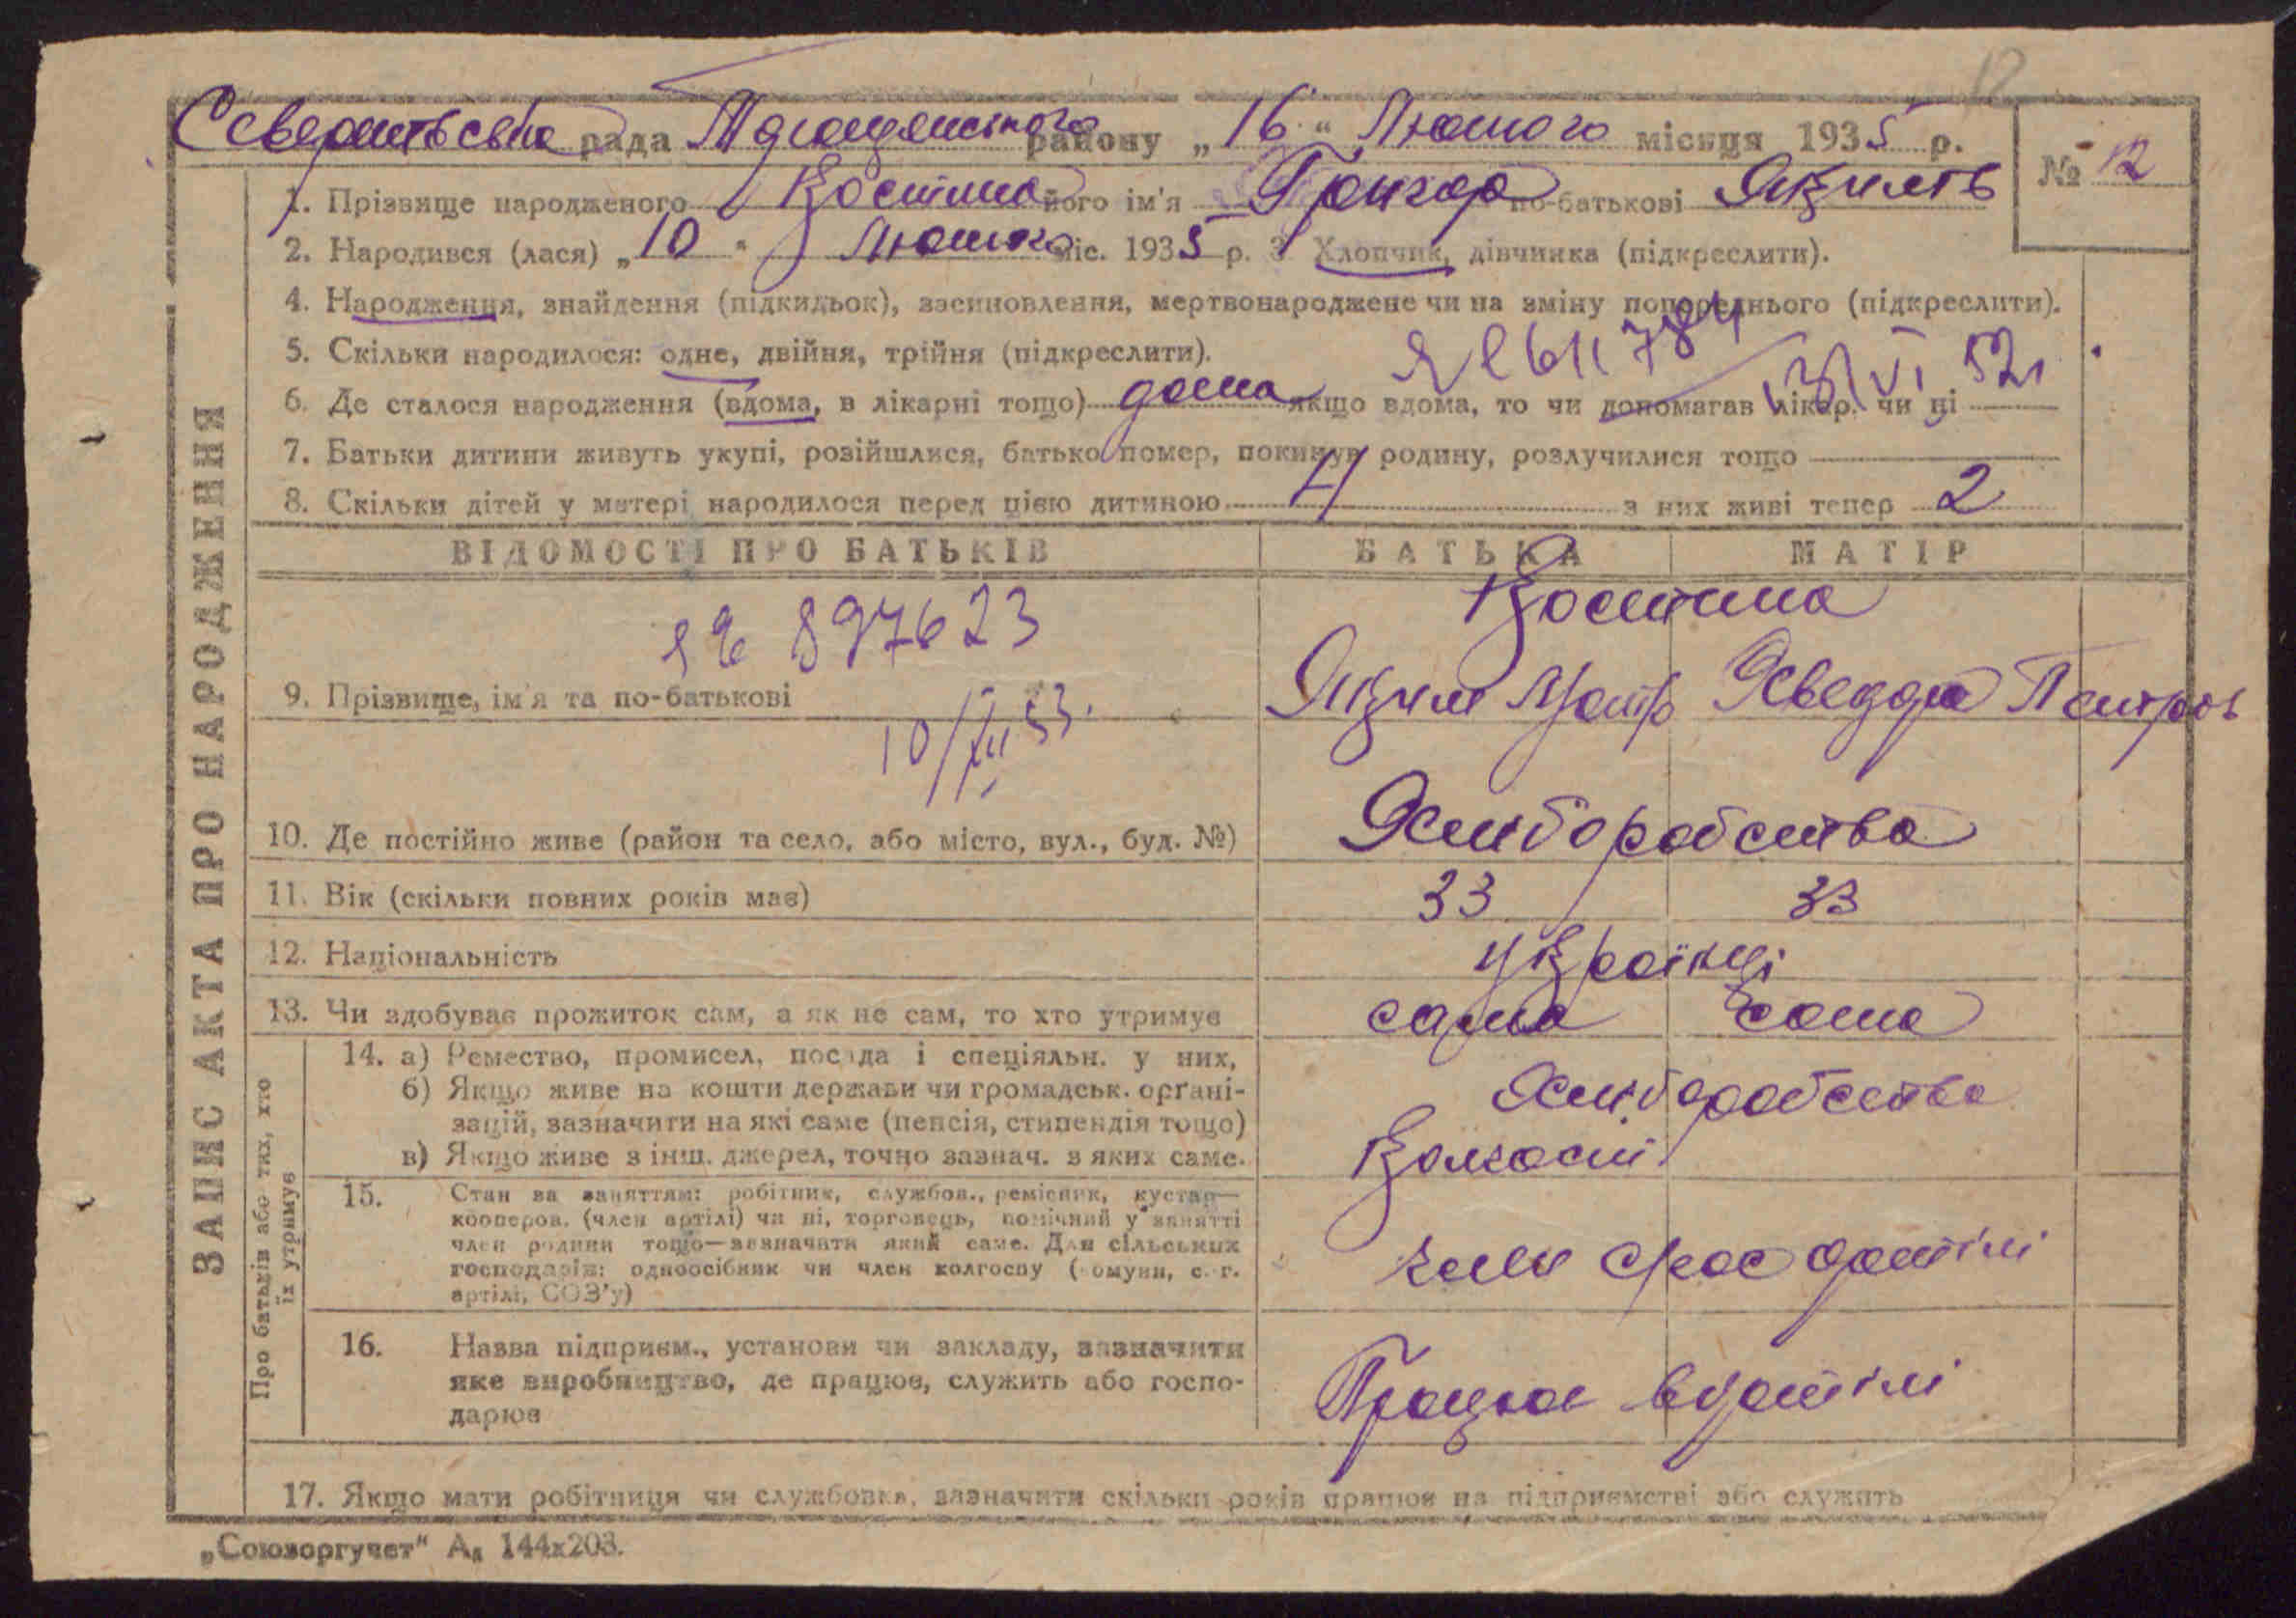 12
рада району „16“ Лютого місяця 1935 р.
№ 12
1. Прізвище народженого Костина його ім'я Григор по-батькові Якимів
2. Народився (лася) „10“ Лютого міс. 1935 р. 3 Хлопчик, дівчинка (підкреслити).
4. Народження, знайдення (підкидьок), засиновлення, мертвонароджене чи на зміну попереднього (підкреслити).
5. Скільки народилося: одне, двійня, трійня (підкреслити).
6. Де сталося народження (вдома, в лікарні тощо) дома якщо вдома, то чи допомагав лікар, чи ні
7. Батьки дитини живуть укупі, розійшлися, батько помер, покинув родину, розлучилися тощо
8. Скільки дітей у матері народилося перед цією дитиною 4 з них живі тепер 2
ВІДОМОСТІ ПРО БАТЬКІВ БАТЬКА МАТІР
Костина
897623
9. Прізвище, ім'я та по-батькові Яким
10/XII 53.
10. Де постійно живе (район та село, або місто, вул., буд. №)
11. Вік (скільки повних років має) 33 33
12. Національність українці
13. Чи здобуває прожиток сам, а як не сам, то хто утримує сама сама
14. а) Ремество, промисел, посада і спеціяльн. у них,
б) Якщо живе на кошти держави чи громадськ. орґані-
зацій, зазначити на які саме (пенсія, стипендія тощо)
в) Якщо живе з інш. джерел, точно зазнач. з яких саме.
15. Стан за заняттям: робітник, службов., ремісник, кустар—
кооперов. (член артілі) чи ні, торговець, помічний у занятті
член родини тощо—зазначити який саме. Для сільських
господарів: одноосібник чи член колгоспу (комуни, с.-г.
артілі, СОЗ'у)
член артілі
16. Назва підприєм., установи чи закладу, зазначити
яке виробництво, де працює, служить або госпо-
дарює
Працює в артілі
17. Якщо мати робітниця чи службовка, зазначити скільки років працює на підприємстві або служить
ЗАПИС АКТА ПРО НАРОДЖЕННЯ
Про батьків або тих, хто
їх утримує
„Союзоргучет“ А₄ 144х203.